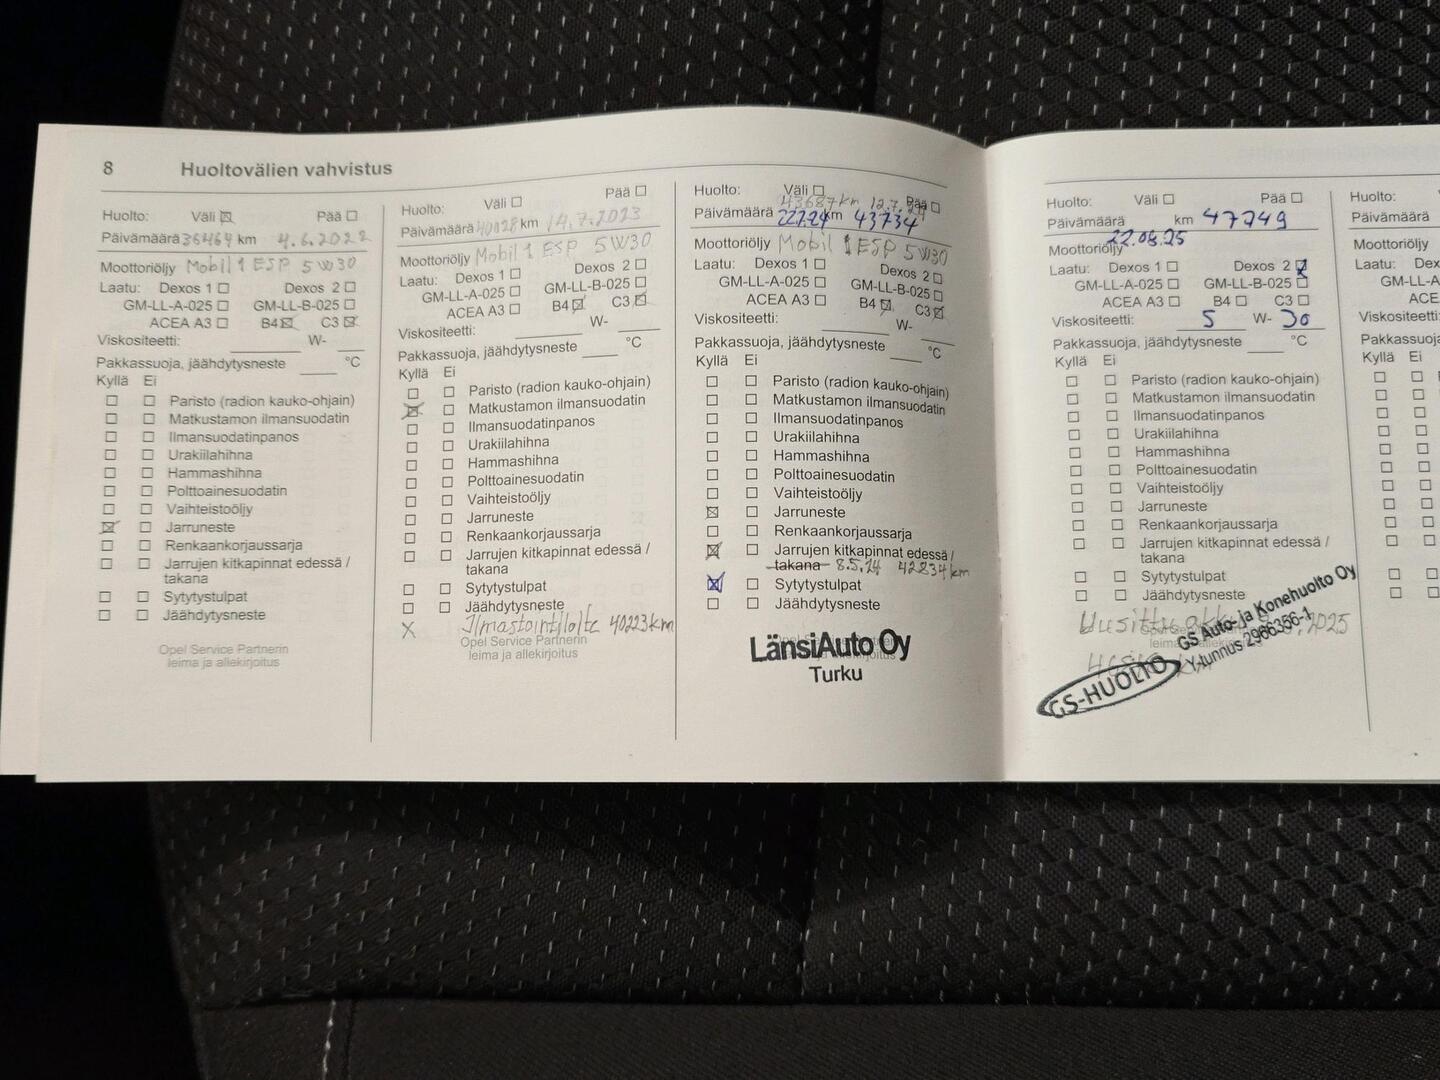 8 Huoltovälien vahvistus
Huolto: Väli ☒ Pää ☐
Päivämäärä 36464 km 4.6.2022
Moottoriöljy Mobil 1 ESP 5W30
Laatu: Dexos 1 ☐ Dexos 2 ☐
GM-LL-A-025 ☐ GM-LL-B-025 ☐
ACEA A3 ☐ B4 ☒ C3 ☒
Viskositeetti: W-
Pakkassuoja, jäähdytysneste °C
Kyllä Ei
☐ ☐ Paristo (radion kauko-ohjain)
☐ ☐ Matkustamon ilmansuodatin
☐ ☐ Ilmansuodatinpanos
☐ ☐ Urakiilahihna
☐ ☐ Hammashihna
☐ ☐ Polttoainesuodatin
☐ ☐ Vaihteistoöljy
☒ ☐ Jarruneste
☐ ☐ Renkaankorjaussarja
☐ ☐ Jarrujen kitkapinnat edessä /
takana
☐ ☐ Sytytystulpat
☐ ☐ Jäähdytysneste
Opel Service Partnerin
leima ja allekirjoitus
Huolto: Väli ☐ Pää ☐
Päivämäärä 40028 km 14.7.2023
Moottoriöljy Mobil 1 ESP 5W30
Laatu: Dexos 1 ☐ Dexos 2 ☐
GM-LL-A-025 ☐ GM-LL-B-025 ☐
ACEA A3 ☐ B4 ☒ C3 ☒
Viskositeetti: W-
Pakkassuoja, jäähdytysneste °C
Kyllä Ei
☐ ☐ Paristo (radion kauko-ohjain)
☒ ☐ Matkustamon ilmansuodatin
☐ ☐ Ilmansuodatinpanos
☐ ☐ Urakiilahihna
☐ ☐ Hammashihna
☐ ☐ Polttoainesuodatin
☐ ☐ Vaihteistoöljy
☐ ☐ Jarruneste
☐ ☐ Renkaankorjaussarja
☐ ☐ Jarrujen kitkapinnat edessä /
takana
☐ ☐ Sytytystulpat
☐ ☐ Jäähdytysneste
X Ilmastointilaite 40223 km
Opel Service Partnerin
leima ja allekirjoitus
Huolto: Väli ☐ Pää ☐
43687 km
Päivämäärä km 43734
Moottoriöljy Mobil 1 ESP 5W30
Laatu: Dexos 1 ☐ Dexos 2 ☐
GM-LL-A-025 ☐ GM-LL-B-025 ☐
ACEA A3 ☐ B4 ☒ C3 ☒
Viskositeetti: W-
Pakkassuoja, jäähdytysneste °C
Kyllä Ei
☐ ☐ Paristo (radion kauko-ohjain)
☐ ☐ Matkustamon ilmansuodatin
☐ ☐ Ilmansuodatinpanos
☐ ☐ Urakiilahihna
☐ ☐ Hammashihna
☐ ☐ Polttoainesuodatin
☐ ☐ Vaihteistoöljy
☒ ☐ Jarruneste
☐ ☐ Renkaankorjaussarja
☒ ☐ Jarrujen kitkapinnat edessä /
takana 8.5.24 42834 km
☒ ☐ Sytytystulpat
☐ ☐ Jäähdytysneste
LänsiAuto Oy
Turku
Huolto: Väli ☐ Pää ☐
Päivämäärä km 47749
22.08.25
Moottoriöljy
Laatu: Dexos 1 ☐ Dexos 2 ☒
GM-LL-A-025 ☐ GM-LL-B-025 ☐
ACEA A3 ☐ B4 ☐ C3 ☐
Viskositeetti: 5 W- 30
Pakkassuoja, jäähdytysneste °C
Kyllä Ei
☐ ☐ Paristo (radion kauko-ohjain)
☐ ☐ Matkustamon ilmansuodatin
☐ ☐ Ilmansuodatinpanos
☐ ☐ Urakiilahihna
☐ ☐ Hammashihna
☐ ☐ Polttoainesuodatin
☐ ☐ Vaihteistoöljy
☐ ☐ Jarruneste
☐ ☐ Renkaankorjaussarja
☐ ☐ Jarrujen kitkapinnat edessä /
takana
☐ ☐ Sytytystulpat
☐ ☐ Jäähdytysneste
GS Auto- ja Konehuolto Oy
Y-tunnus 2966356-1
GS-HUOLTO
Huolto:
Päivämäärä
Moottoriöljy
Laatu:
Kyllä Ei